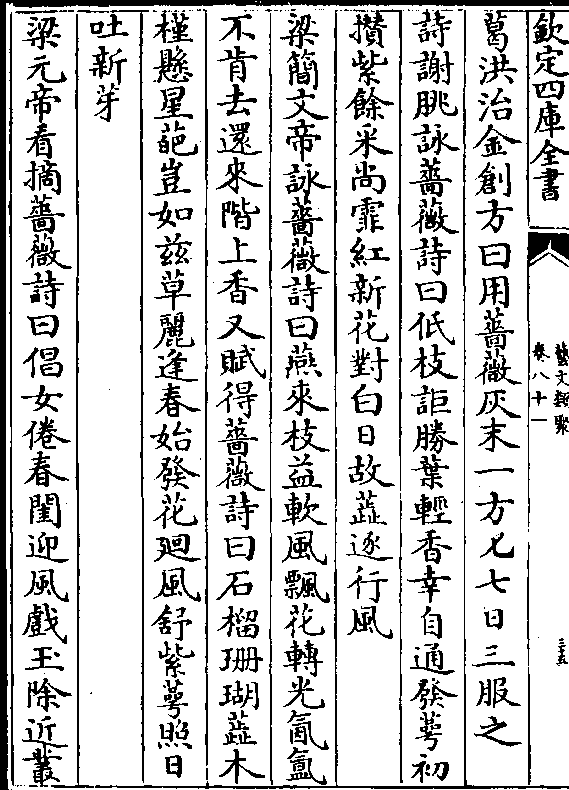 欽定四庫全書
藝文類聚
卷八十一
三十五
葛洪治金創方曰用薔薇灰末一方匕七日三服之
詩謝朓詠薔薇詩曰低枝詎勝葉輕香幸自通發萼初
攢紫餘采尚霏紅新花對白日故蕋逐行風
梁簡文帝詠薔薇詩曰燕來枝益軟風飄花轉光氤氳
不肯去還來階上香又賦得薔薇詩曰石榴珊瑚蕋木
槿懸星葩豈如兹草麗逢春始發花廻風舒紫萼照日
吐新芽
梁元帝看摘薔薇詩曰倡女倦春閨迎風戲玉除近叢